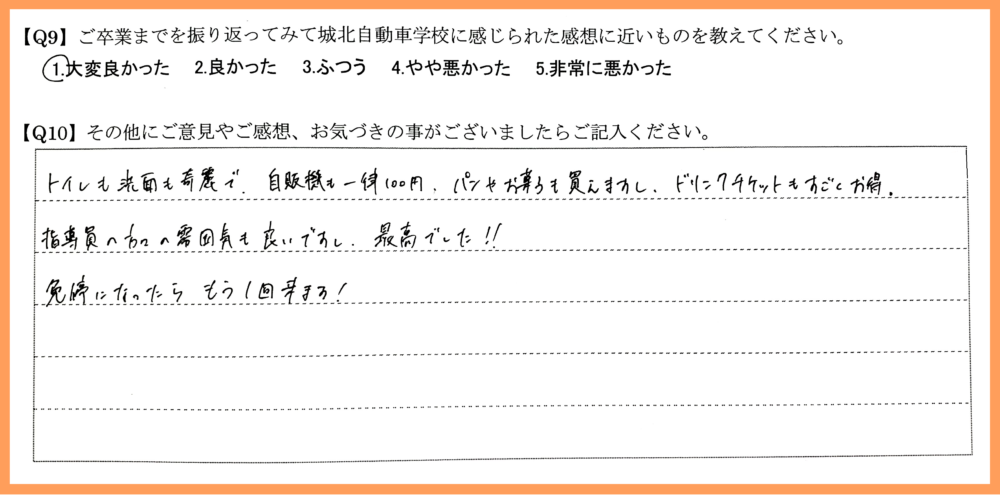 【Q9】ご卒業までを振り返ってみて城北自動車学校に感じられた感想に近いものを教えてください。
1.大変良かった 2.良かった 3.ふつう 4.やや悪かった 5.非常に悪かった
【Q10】その他にご意見やご感想、お気づきの事がございましたらご記入ください。
トイレも洗面も奇麗で、自販機も一律100円、パンやお寿司も買えますし、ドリンクチケットもすごくお得。
指導員の方々の雰囲気も良いですし、最高でした!!
免停になったらもう1回来ます!